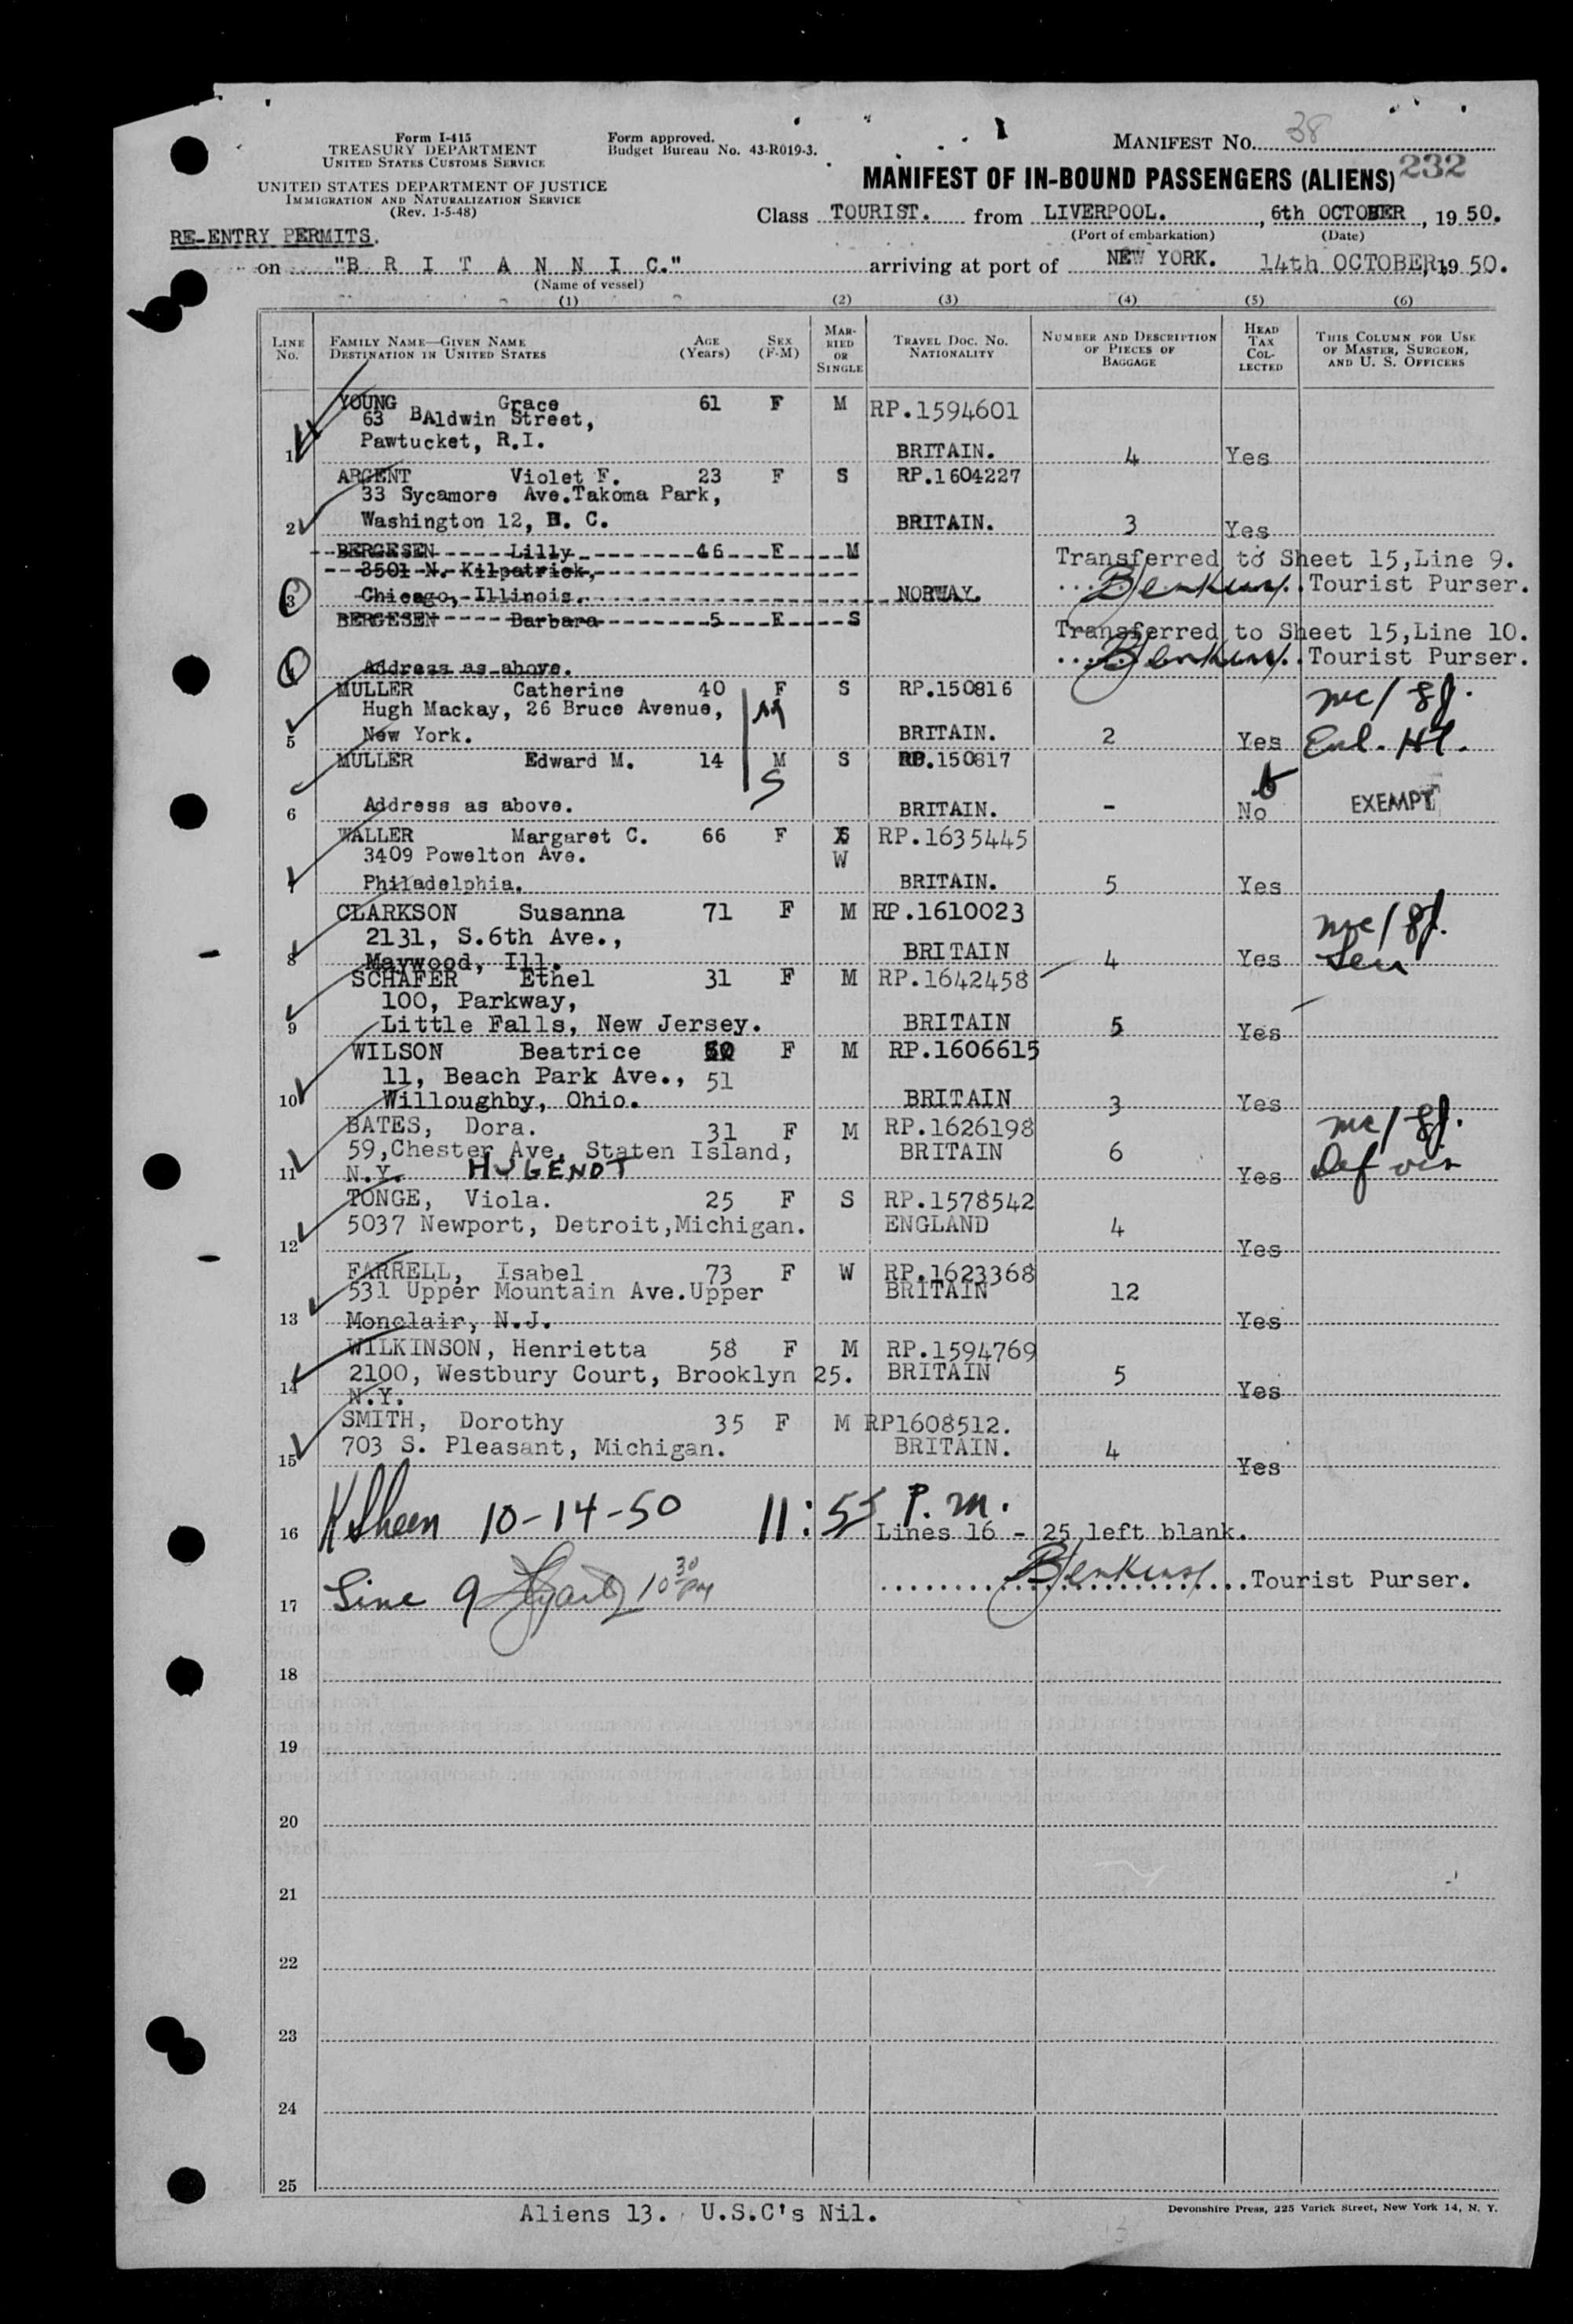 Form I-415
TREASURY DEPARTMENT
UNITED STATES CUSTOMS SERVICE
Form approved.
Budget Bureau No. 43-R019-3.
MANIFEST NO. 38
UNITED STATES DEPARTMENT OF JUSTICE
IMMIGRATION AND NATURALIZATION SERVICE
(Rev. 1-5-48)
MANIFEST OF IN-BOUND PASSENGERS (ALIENS) 232
Class TOURIST. from LIVERPOOL., 6th OCTOBER, 1950.
(Port of embarkation) (Date)
RE-ENTRY PERMITS.
on "B R I T A N N I C." arriving at port of NEW YORK. 14th OCTOBER, 1950.
(Name of vessel)
(1) (2) (3) (4) (5) (6)
LINE NO. FAMILY NAME—GIVEN NAME DESTINATION IN UNITED STATES AGE (Years) SEX (F-M) MARRIED OR SINGLE TRAVEL DOC. NO. NATIONALITY NUMBER AND DESCRIPTION OF PIECES OF BAGGAGE HEAD TAX COLLECTED THIS COLUMN FOR USE OF MASTER, SURGEON, AND U. S. OFFICERS
YOUNG Grace 61 F M RP.1594601
63 BAldwin Street,
1 Pawtucket, R.I. BRITAIN. 4 Yes
ARGENT Violet F. 23 F S RP.1604227
33 Sycamore Ave.Takoma Park,
2 Washington 12, D. C. BRITAIN. 3 Yes
BERGESEN Lilly 46 F M Transferred to Sheet 15,Line 9.
3501 N. Kilpatrick,
3 Chicago, Illinois. NORWAY. BJenkins. Tourist Purser.
BERGESEN Barbara 5 F S Transferred to Sheet 15,Line 10.
4 Address as above. BJenkins. Tourist Purser.
MULLER Catherine 40 F S RP.150816
Hugh Mackay, 26 Bruce Avenue, M
5 New York. BRITAIN. 2 Yes
MULLER Edward M. 14 M S RP.150817
S
6 Address as above. BRITAIN. - No EXEMPT
WALLER Margaret C. 66 F W RP.1635445
3409 Powelton Ave.
7 Philadelphia. BRITAIN. 5 Yes
CLARKSON Susanna 71 F M RP.1610023
2131, S.6th Ave.,
8 Maywood, Ill. BRITAIN 4 Yes
SCHAFER Ethel 31 F M RP.1642458
100, Parkway,
9 Little Falls, New Jersey. BRITAIN 5 Yes
WILSON Beatrice 50 F M RP.1606615
11, Beach Park Ave., 51
10 Willoughby, Ohio. BRITAIN 3 Yes
BATES, Dora. 31 F M RP.1626198
59,Chester Ave. Staten Island, BRITAIN 6
11 N.Y. HUGENOT Yes
TONGE, Viola. 25 F S RP.1578542
5037 Newport, Detroit,Michigan. ENGLAND 4
12 Yes
FARRELL, Isabel 73 F W RP.1623368
531 Upper Mountain Ave.Upper BRITAIN 12
13 Monclair, N.J. Yes
WILKINSON, Henrietta 58 F M RP.1594769
2100, Westbury Court, Brooklyn 25. BRITAIN 5
14 N.Y. Yes
SMITH, Dorothy 35 F M RP1608512.
703 S. Pleasant, Michigan. BRITAIN. 4
15 Yes
K Sheen 10-14-50 11:55 P.M.
16 Lines 16 - 25 left blank.
BJenkins. Tourist Purser.
17 Line 9 10 30 PM
18
19
20
21
22
23
24
25
Aliens 13. U.S.C's Nil.
Devonshire Press, 225 Varick Street, New York 14, N. Y.